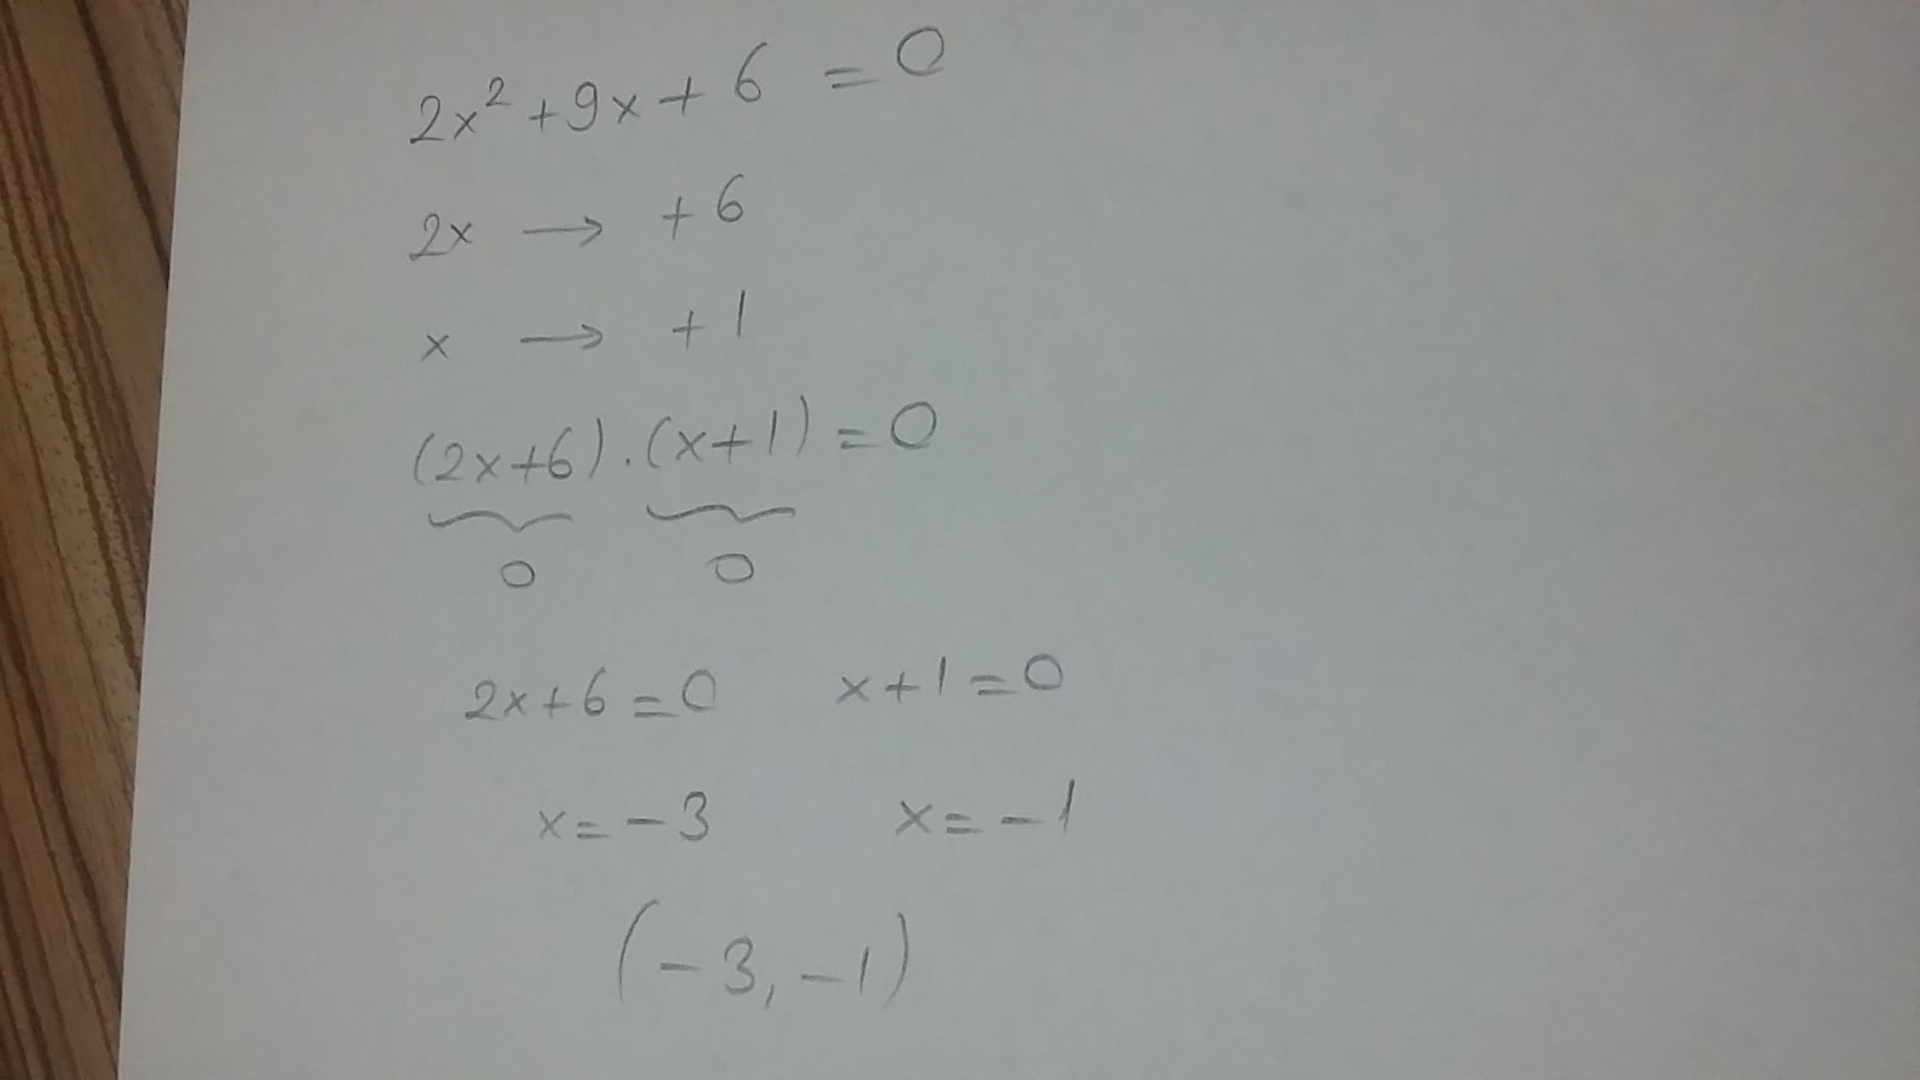 2x² + 9x + 6 = 0
2x → + 6
x → + 1
(2x+6) . (x+1) = 0
0 0
2x+6 = 0 x+1 = 0
x = - 3 x = - 1
(-3, -1)